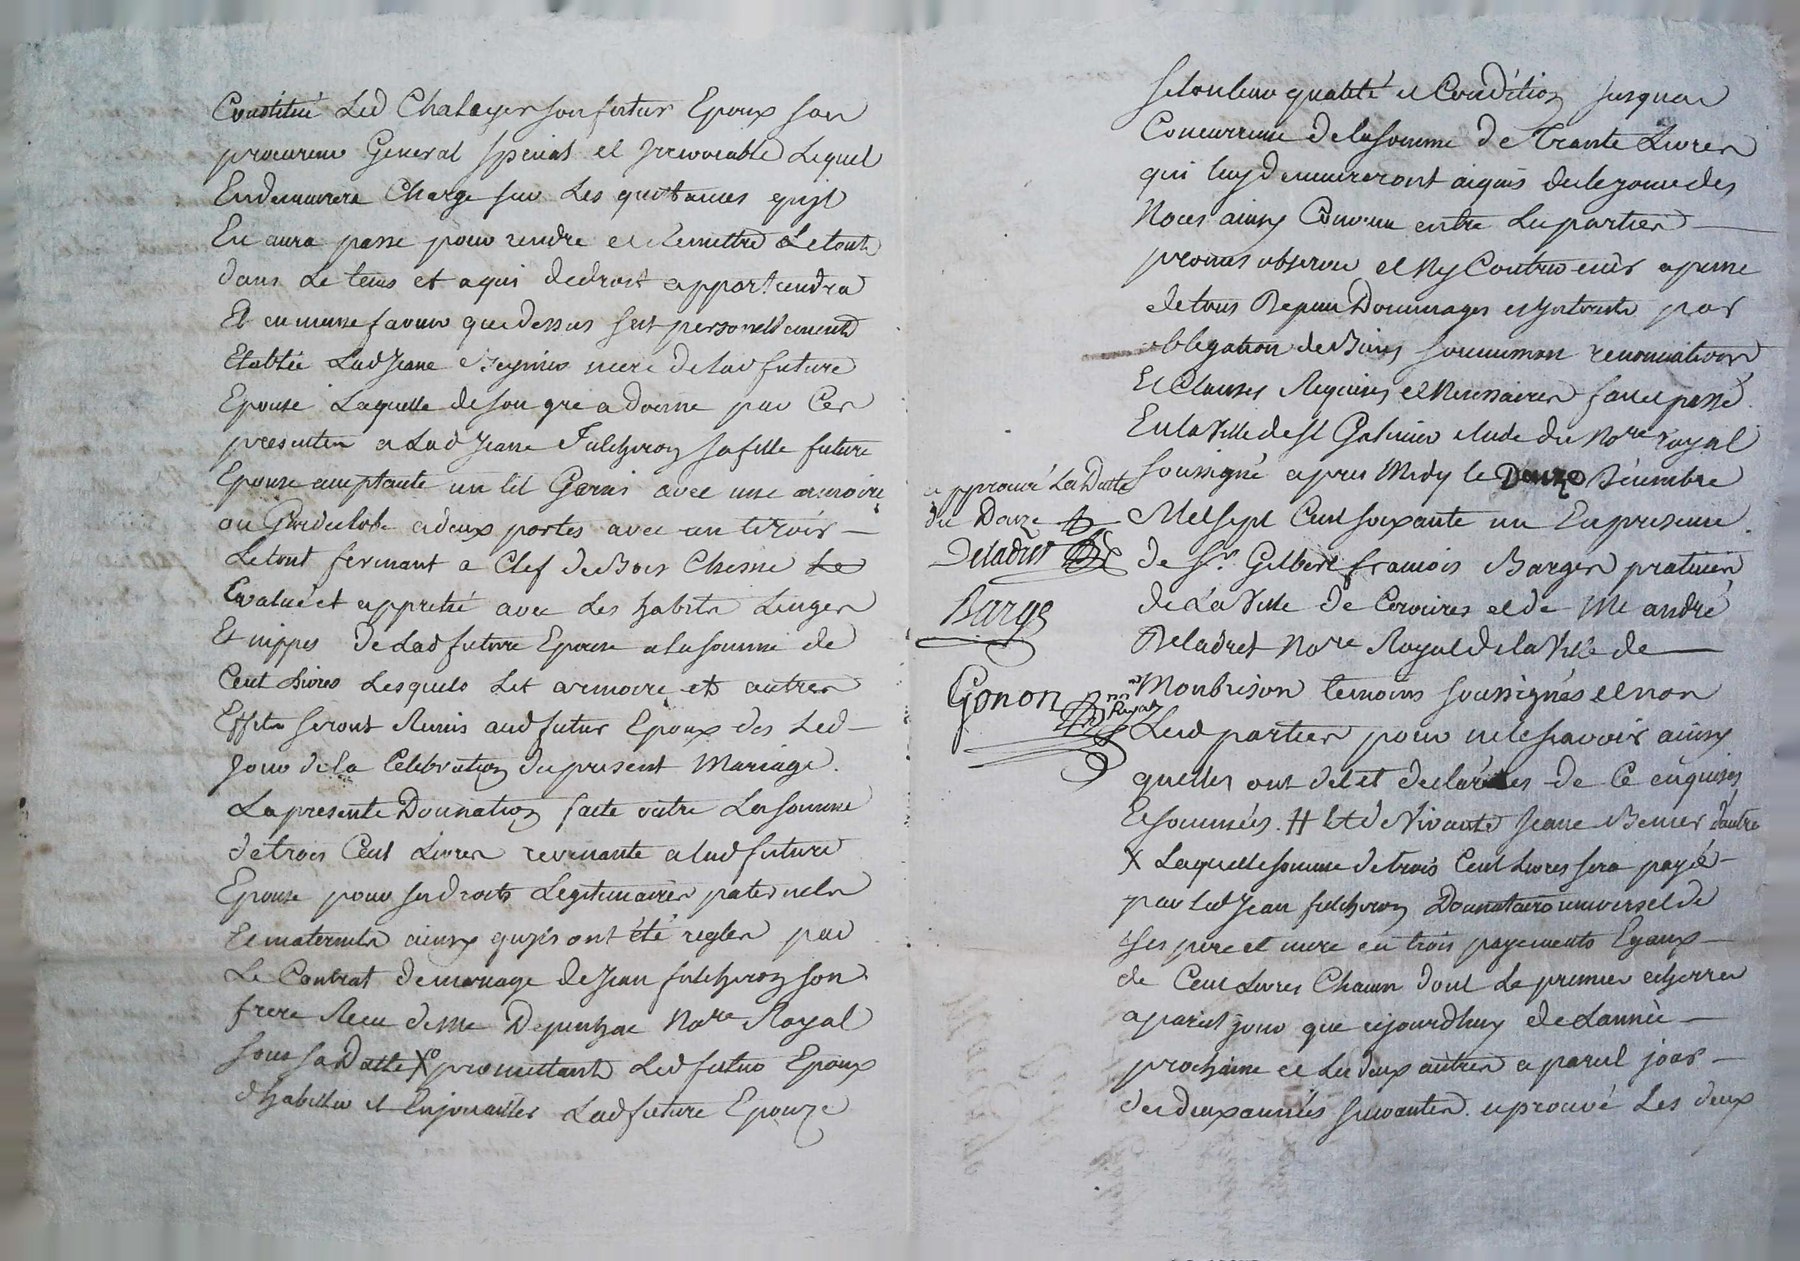 Constitué Led Chalayer son futur Epoux son
procureur General Special et Irrevocable Lequel
Endemeurera Chargé sur Les quittances qujl
En aura passé pour rendre et Remettre Letout
dans Le tems et a qui dedroit appartiendra
Et en mesme faveur que dessus sest personellement
Etablie Lad Jeane mere delad future
Epouse Laquelle deson gré a donné par Ces
presentes a Lad Jeane Fulchiron sa fille future
Epouse acceptante un lit Garni avec une armoire
ou Garderobe adeux portes avec un tiroir –
Letout fermant a Clef de Bois Chesne
Evalué et appretié avec Les habits Linges
Et nippes de Lad future Epouse a la somme de
Cent Livres Lesquels Lit armoire et autres
Effets seront Remis aud futur Epoux des Led –
Jour de la Célébration du present Mariage.
La presente Donnation faite outre La somme
detrois Cent Livres revenante a lad future
Epouse pour ses droits Legitimaires paternels
Et maternels ainsy qujls ont été reglés par
Le Contrat de mariage de Jean fulchiron son
frere Receu de Me Nore Royal
sous sa Datte X promettant Led futur Epoux
dhabiller et Enjoualler Lad future Epouze
selon leur qualité et Condition Jusques a
Concurrence de la somme de Trante Livres
qui luy demeureront aquis des le jour des
Noces ainsy Convenu entre Les parties —
promis observer et Ny Contrevenir a peine
de tous Depens Dommages et Interests par
obligation de Biens soumission renonciations
Et Clauses Requises et Necessaires fait et passé
En la Ville de St Galmier etude du Nore royal
soussigné apres Midy le Douze Décembre
Mil sept Cent soixante un En presence
de Sr. Gilbert francois Barge praticien
de La Ville de Cervieres et de Me andré
Deladret Nore Royal de la Ville de —
Monbrison temoins soussignés et non
Lesd parties pour ne le scavoir ainsy
quelles ont dit et declarées de Ce enquises
Et sommées. H et de Vivante Jeane dautre
X Laquelle somme de trois Cent Livres sera payée –
par Led Jean fulchiron Donnataire universel de
ses pere et mere en trois payements Egaux –
de Cent Livres Chacun dont Le premier echerra
a pareil jour que cejourdhuy de Lannée –
prochaine et Les deux autres a pareil jour –
des deux années suivantes. aprouvé Les deux
approuvé La Datte
du Douze
Deladret
Barge
Gonon
Nore Royal